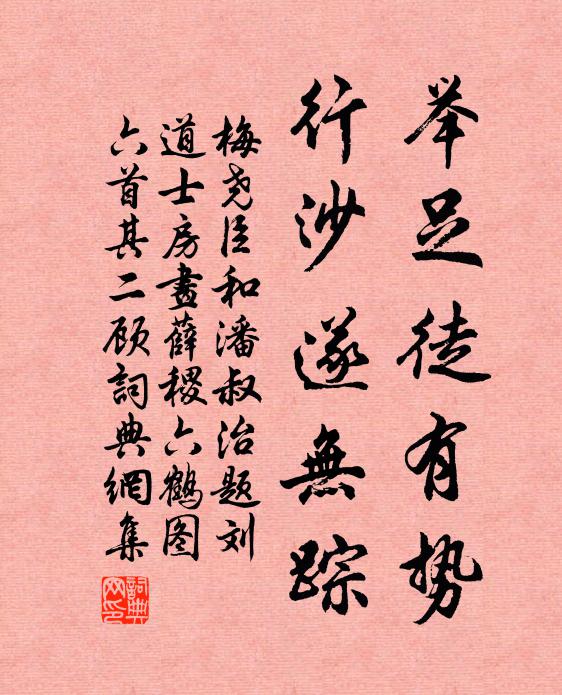 举足徒有势
行沙遂無踪
梅尧臣和潘叔治题刘
道士房畫薛稷六鹤图
六首其二顾詞典網集
詞典
网印